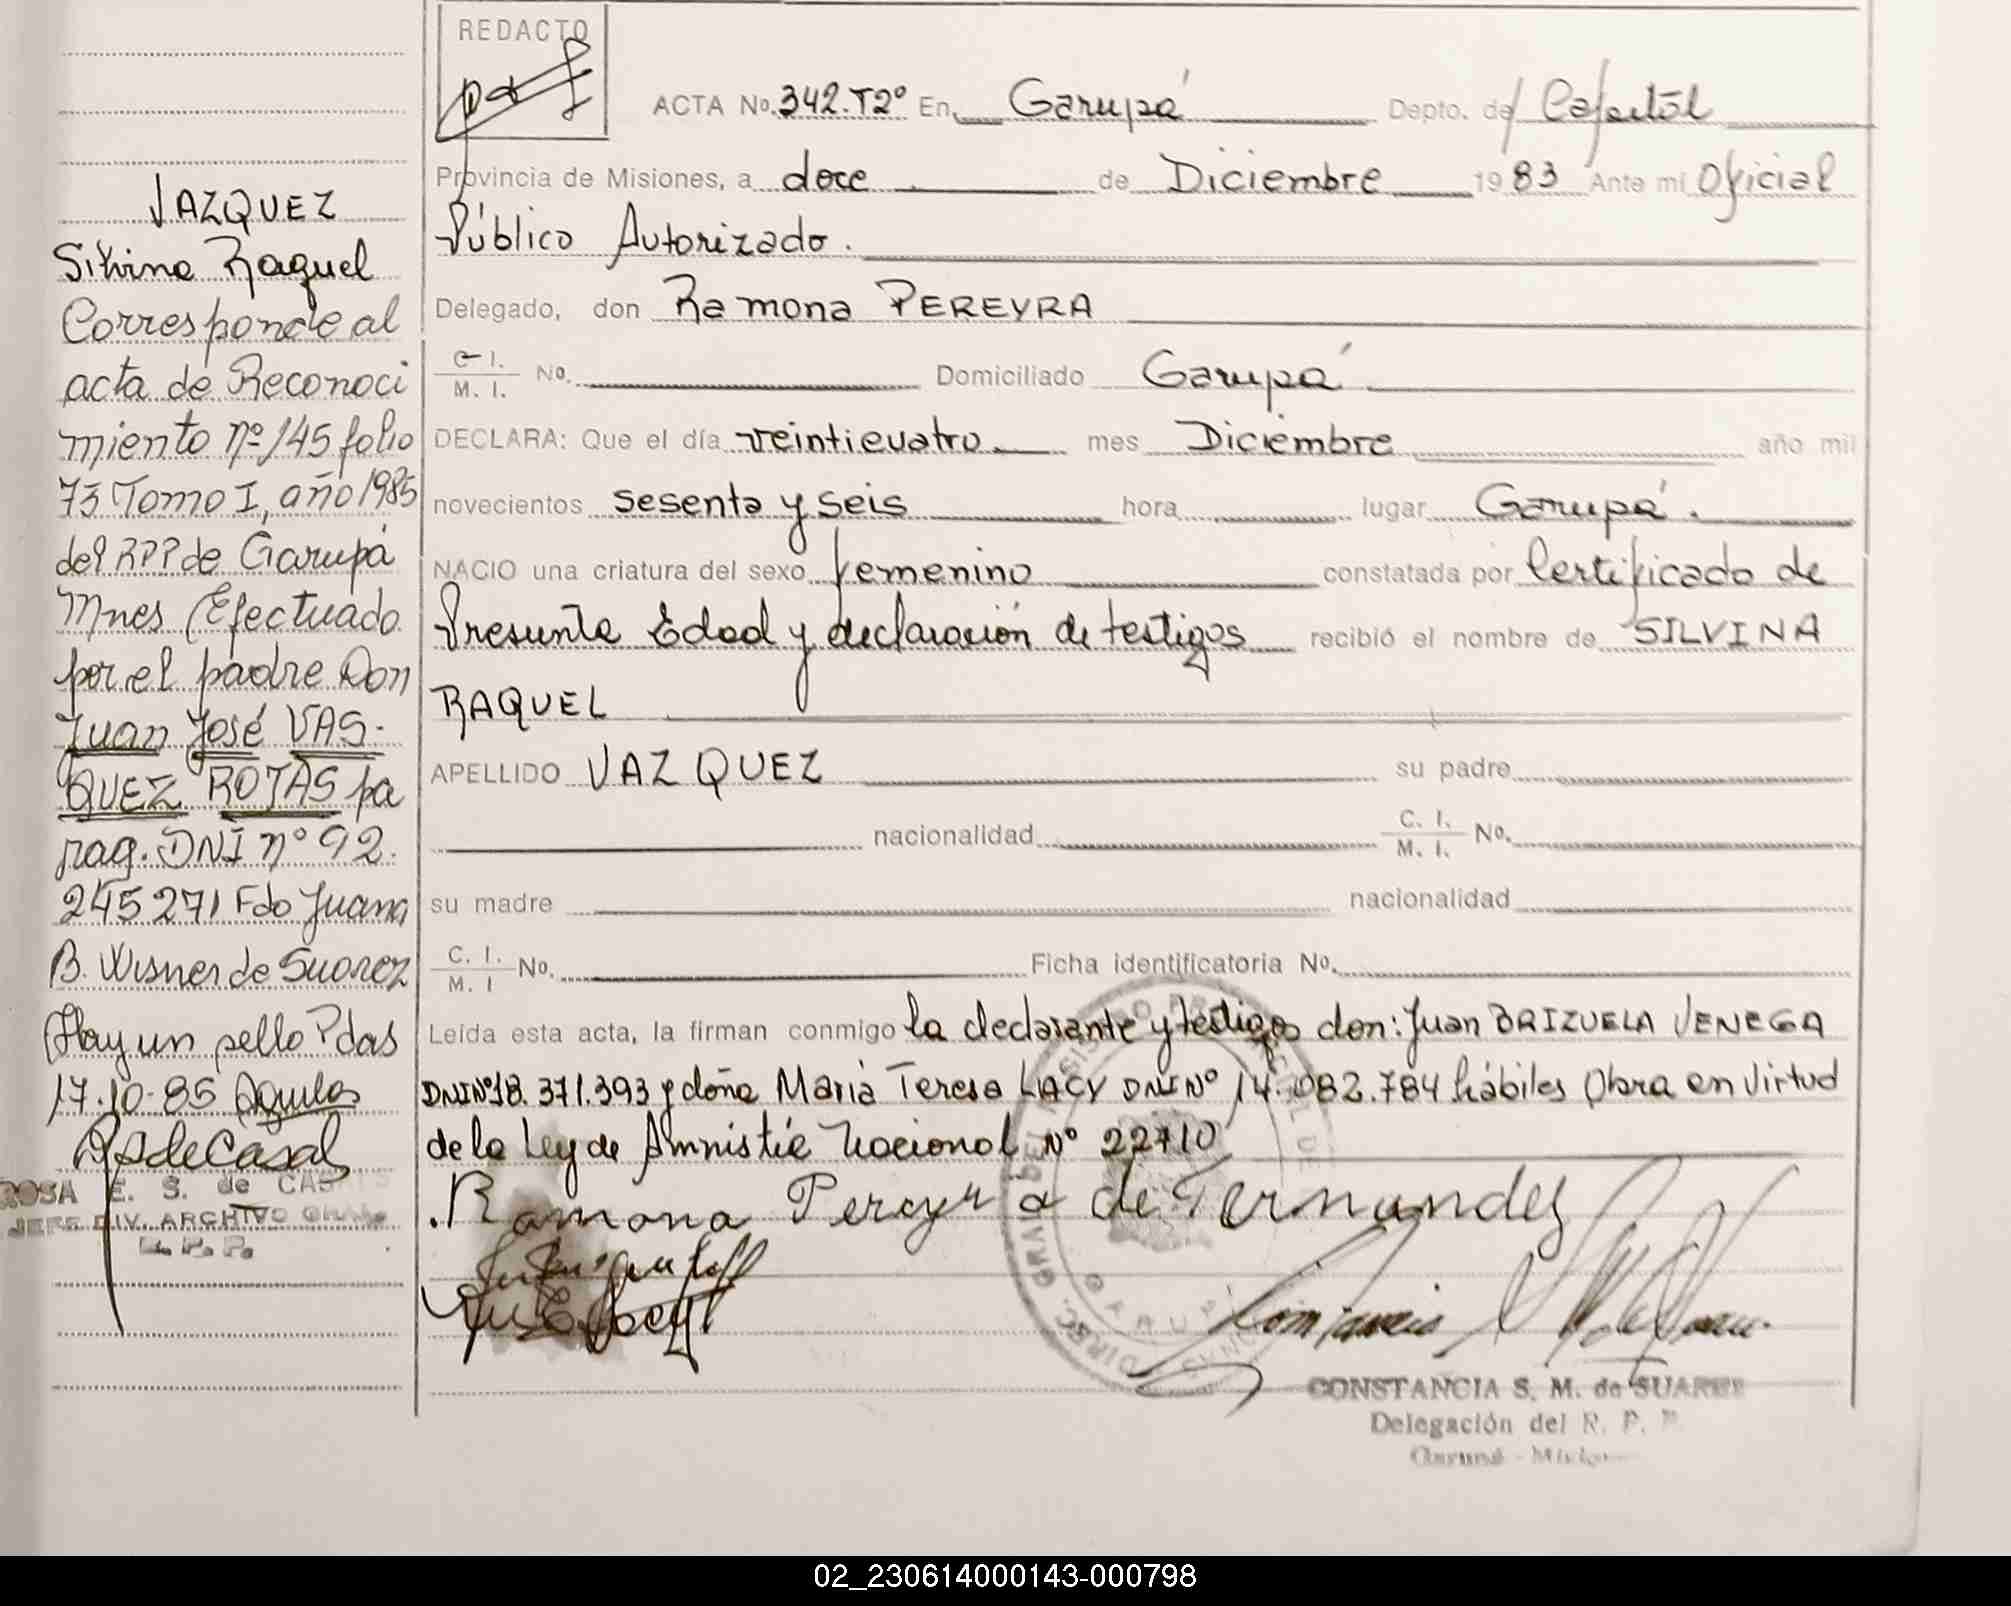 VAZQUEZ
Silvina Raquel
Corresponde al
acta de Reconoci
miento nº 145 folio
73 Tomo I, año 1985
del RPP de Garupá
Mnes (Efectuado
por el padre Don
Juan José VAS-
QUEZ ROJAS pa
rag. DNI nº 92.
245271 Fdo Juana
B. Wisner de Suarez
Hay un sello Pdas
17.10.85 Aguilar
ROSA E. S. de CAS
JEFE DIV. ARCHIVO GRAL
R. P. P.
REDACTO
ACTA No. 342.T2º En Garupá Depto. de Capital
Provincia de Misiones, a doce de Diciembre 1983 Ante mi Oficial
Público Autorizado.
Delegado, don Ramona PEREYRA
C. I.
M. I. No. Domiciliado Garupá
DECLARA: Que el día veinticuatro mes Diciembre año mil
novecientos sesenta y seis hora lugar Garupá.
NACIO una criatura del sexo femenino constatada por Certificado de
Presunta Edad y declaración de testigos recibió el nombre de SILVINA
RAQUEL
APELLIDO VAZQUEZ su padre
nacionalidad C. I.
M. I. No.
su madre nacionalidad
C. I.
M. I No. Ficha identificatoria No.
Leída esta acta, la firman conmigo la declarante y testigos don: Juan BRIZUELA VENEGA
DNI Nº 18.371.393 y doña Maria Teresa LACY DNI Nº 14.082.784 hábiles Obra en virtud
de la Ley de Amnistía Nacional Nº 22710
Ramona Pereyra de Fernandez
CONSTANCIA S. M. de SUAREZ
Delegación del R. P. P.
Garupá - Misiones
02_230614000143-000798